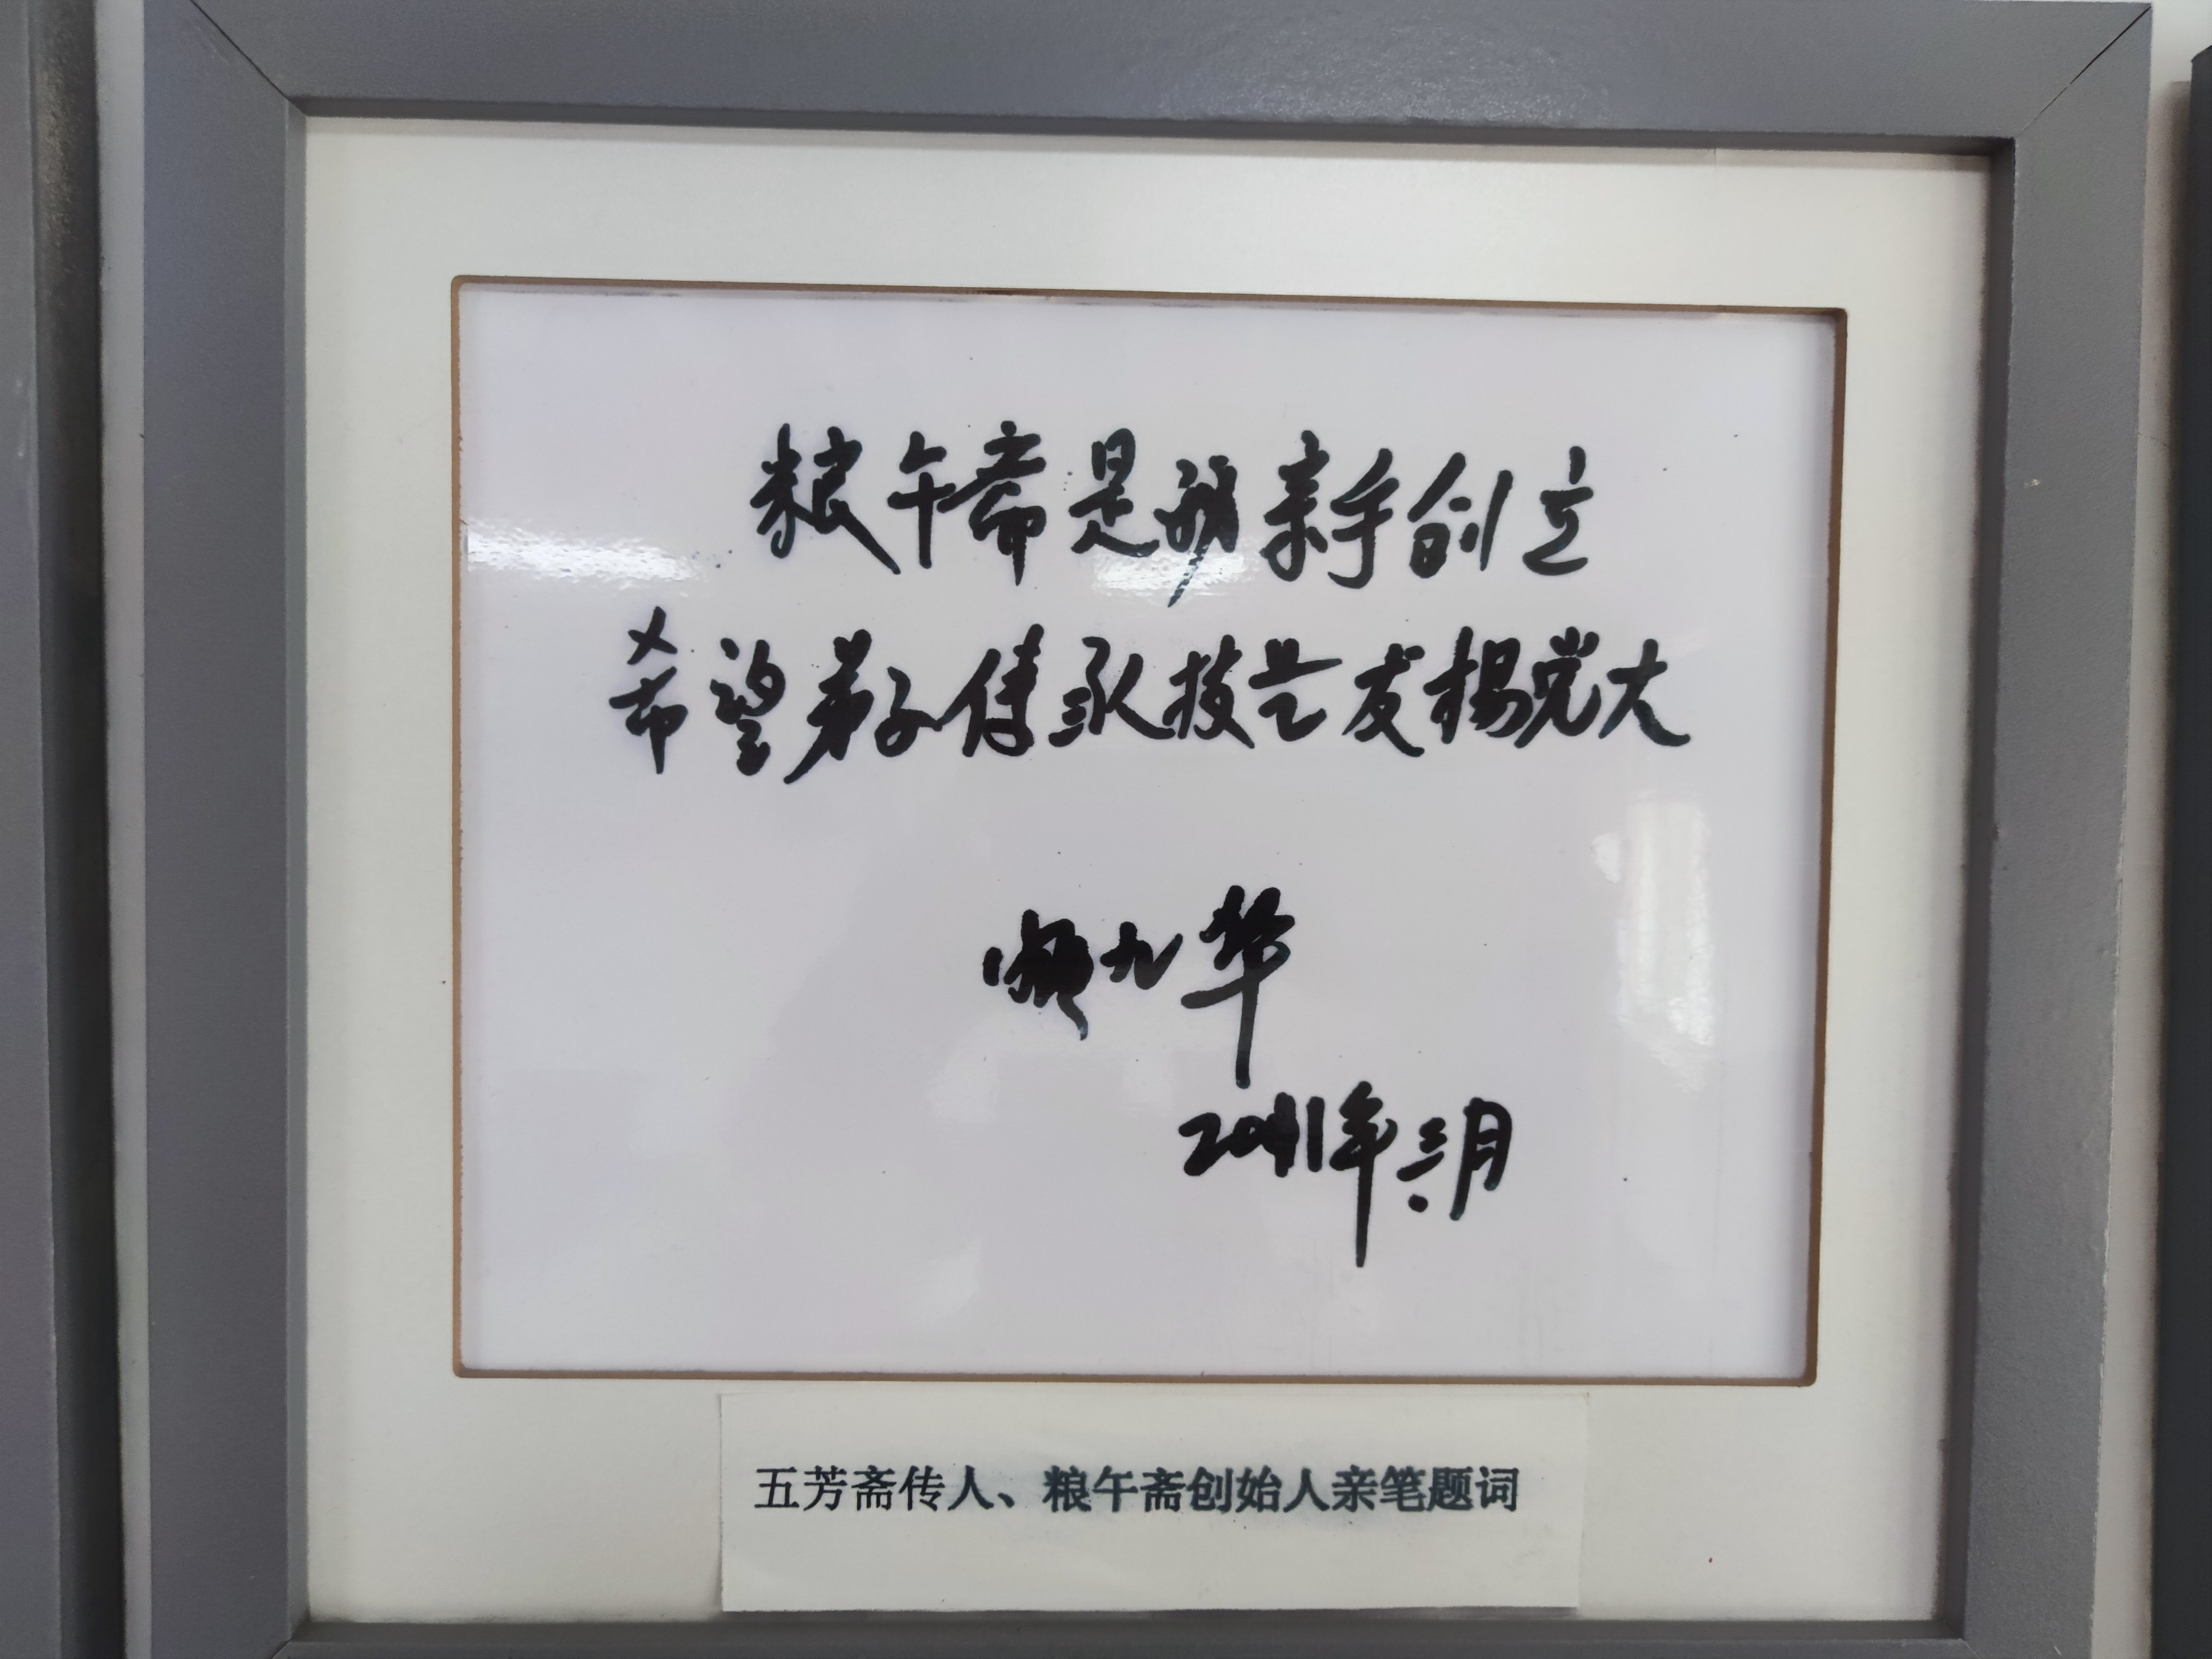 粮午斋是我亲手创立
希望弟子传承技艺发揚光大
顾九华
2011年三月
五芳斋传人、粮午斋创始人亲笔题词